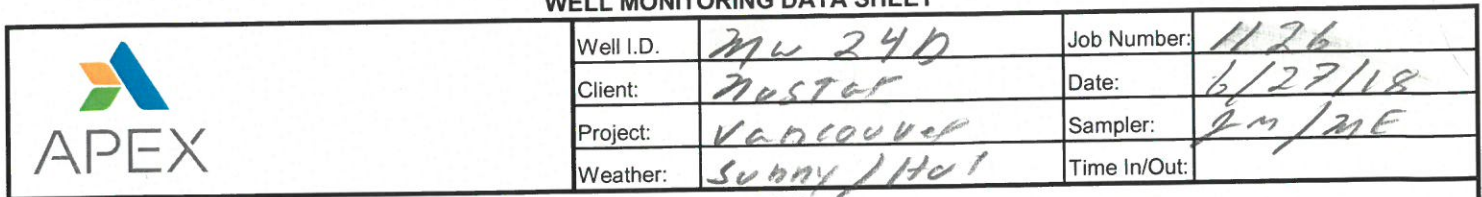 WELL MONITORING DATA SHEET
APEX
Well I.D. MW 24D Job Number: 1126
Client: NuStar Date: 6/27/18
Project: Vancouver Sampler: JM/ME
Weather: Sunny/Hot Time In/Out: